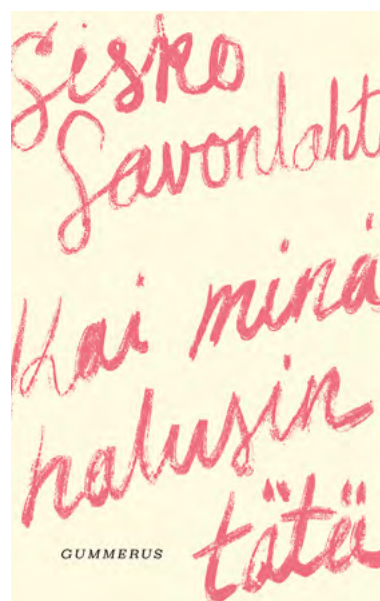 Sisko
Savonlaht
Kai minä
halusin
tätä
GUMMERUS